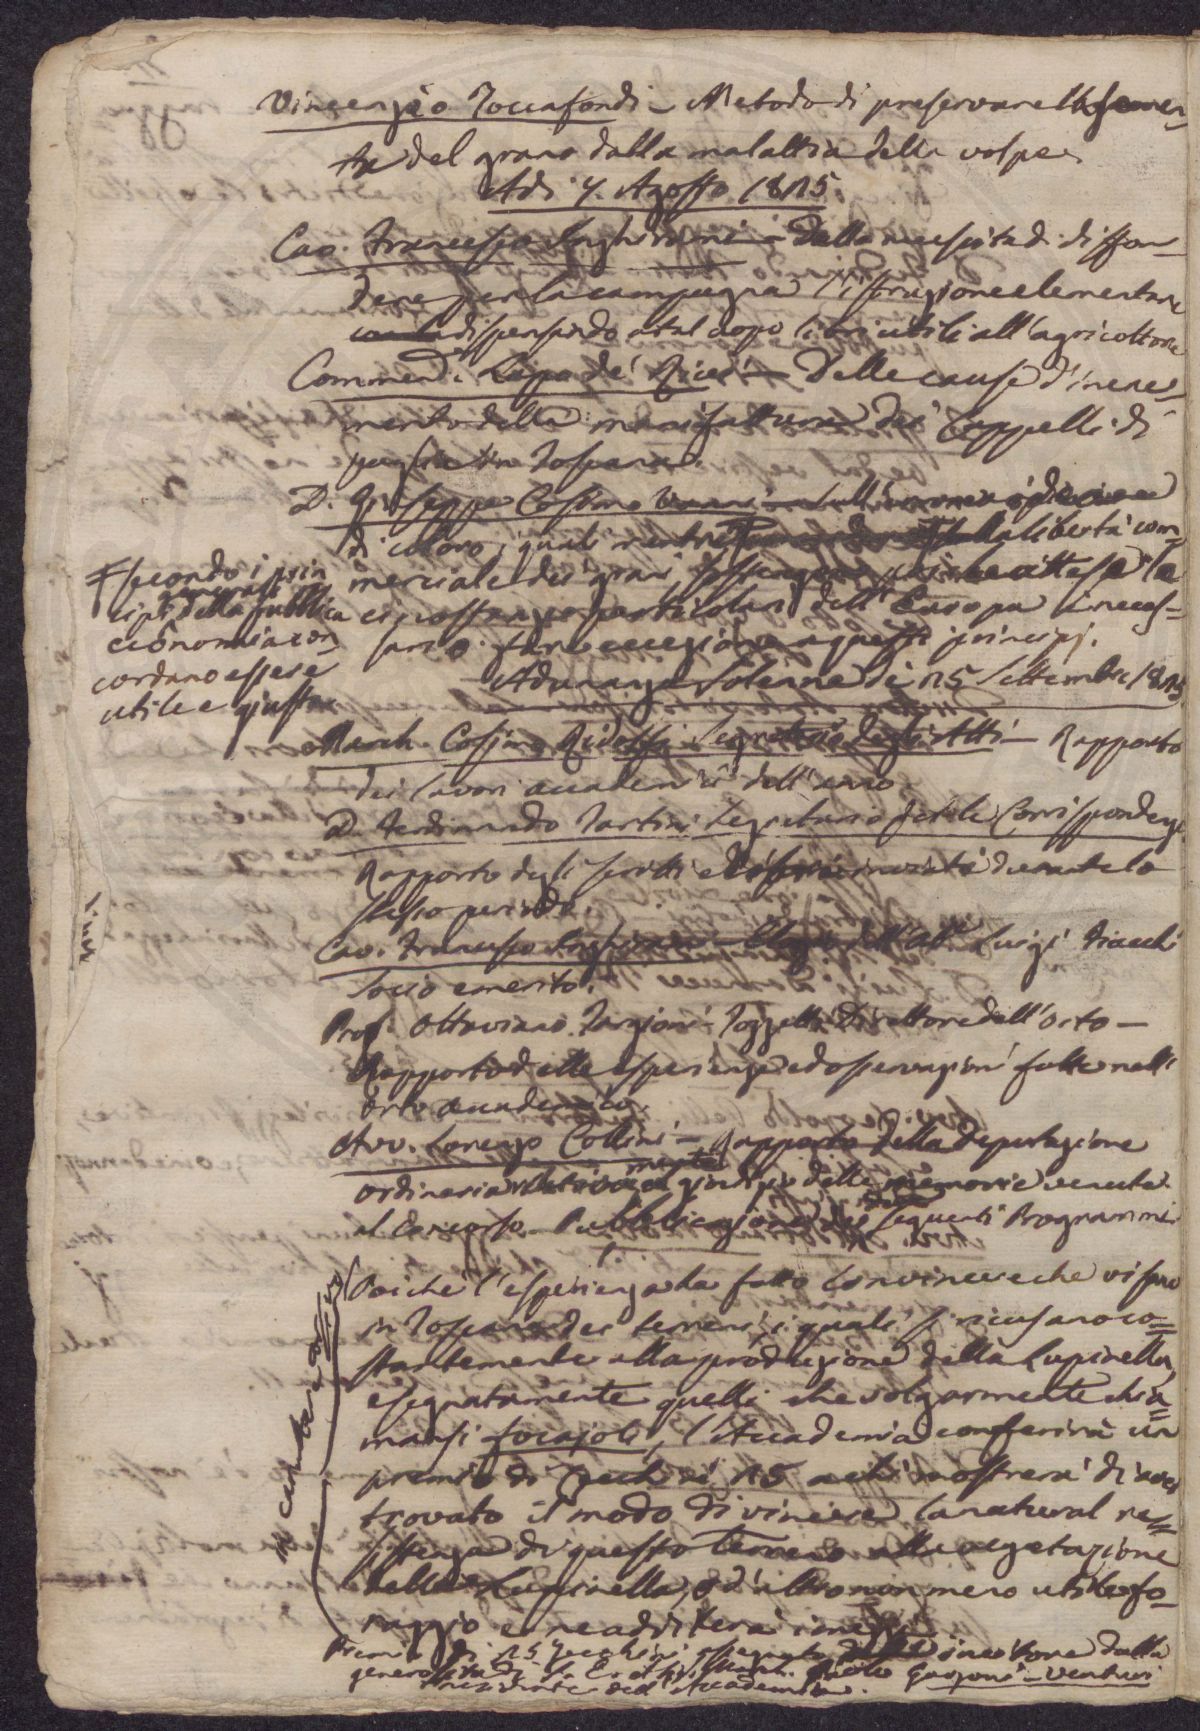 Vincenzio Toccafondi - Metodo di preservare la semen-
ta del grano dalla malattia della volpe.
Adi 7. Agosto 1825
Cav. Francesco Inghirami - Della necessità di diffon-
dere per la campagna l'istruzione elementare
dispensando a tal uopo libri utili all'agricoltore
Commend. Lapo de' Ricci - Delle cause d'incre-
mento della manifattura dei Cappelli di
paglia in Toscana.
D. Giuseppe Cosimo Vanni - Sull'
di coloro, i quali mentre # la libertà com-
merciale dei grani, sostengono attese le
circostanze particolari dell'Europa neces-
sario fare eccezione a questi principj.
# secondo i prin
cipj generali della pubblica
economia con-
cordano essere
utile e giusta
Adunanza Solenne de 25 Settembre 1825
March. Cosimo Ridolfi Segretario degli Atti - Rapporto
dei lavori accademici dell'anno
D. Ferdinando Tartini Segretario delle Corrispondenze
Rapporto degli scritti durante lo
stesso periodo.
Cav. Francesco Inghirami - Elogio dell'Ab. Luigi Fiacchi
Socio emerito.
Prof. Ottaviano Targioni Tozzetti Direttore dell'Orto -
Rapporto delle esperienze ed osservazioni fatte nell'
Orto accademico.
Avv. Lorenzo Collini - Rapporto della Deputazione
ordinaria relativamente al giudizio delle memorie venute
al Concorso - Pubblicazione dei seguenti Programmi
Poichè l'esperienza ha fatto convincere che vi sono
in Toscana dei terreni, i quali si ricusano co=
stantemente alla produzione della Lupinella,
e segnatamente quelli che volgarmente chia=
mansi focajoli, l'Accademia conferirà un
premio di Zecchini 25 a chi mostrerà di aver
trovato il modo di vincere la natural re=
sistenza di questo terreno alla vegetazione
della Lupinella, o d'altro non meno utile fo-
raggio e ne additerà i mezzi
Premio di 25 Zecchini dalla
generosità di Paolo Garzoni - Venturi
Presidente dell'Accademia.